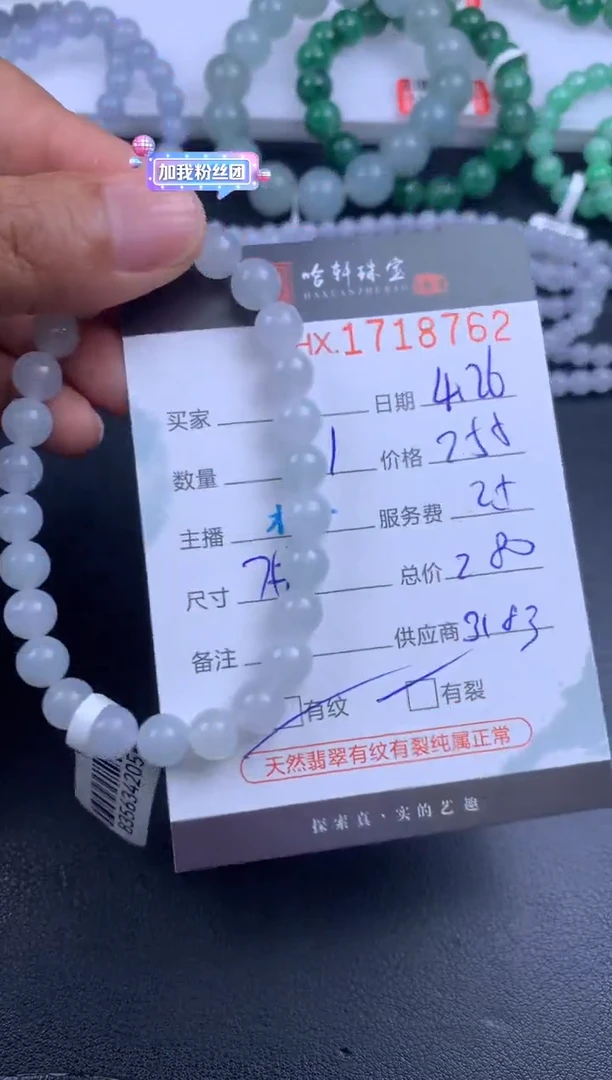 加我粉丝团
哈轩珠宝
HAXUANZHUBAO
HX.1718762
买家 日期 4.26
数量 1 价格 255
主播 服务费 25
尺寸 总价 280
备注 供应商 3183
有纹 有裂
天然翡翠有纹有裂纯属正常
探索真·实的艺趣